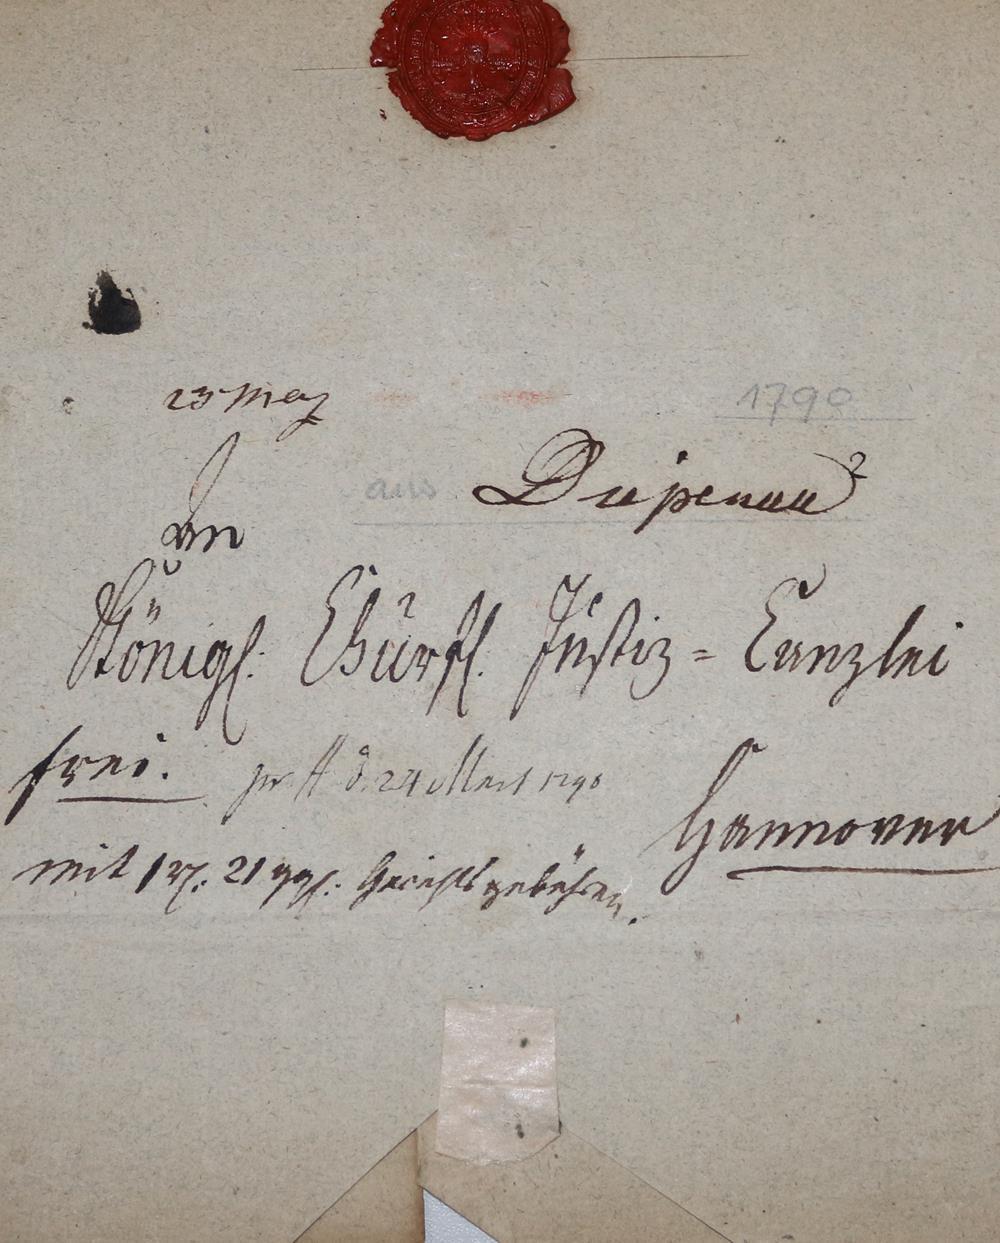 23 May 1790
aus Diepenau
An
Königl. Churfl. Justiz = Canzlei
frei. d. 24 Mart 1790
Hannover
mit 1 rh. 21 ggl. Gerichtsgebühren.